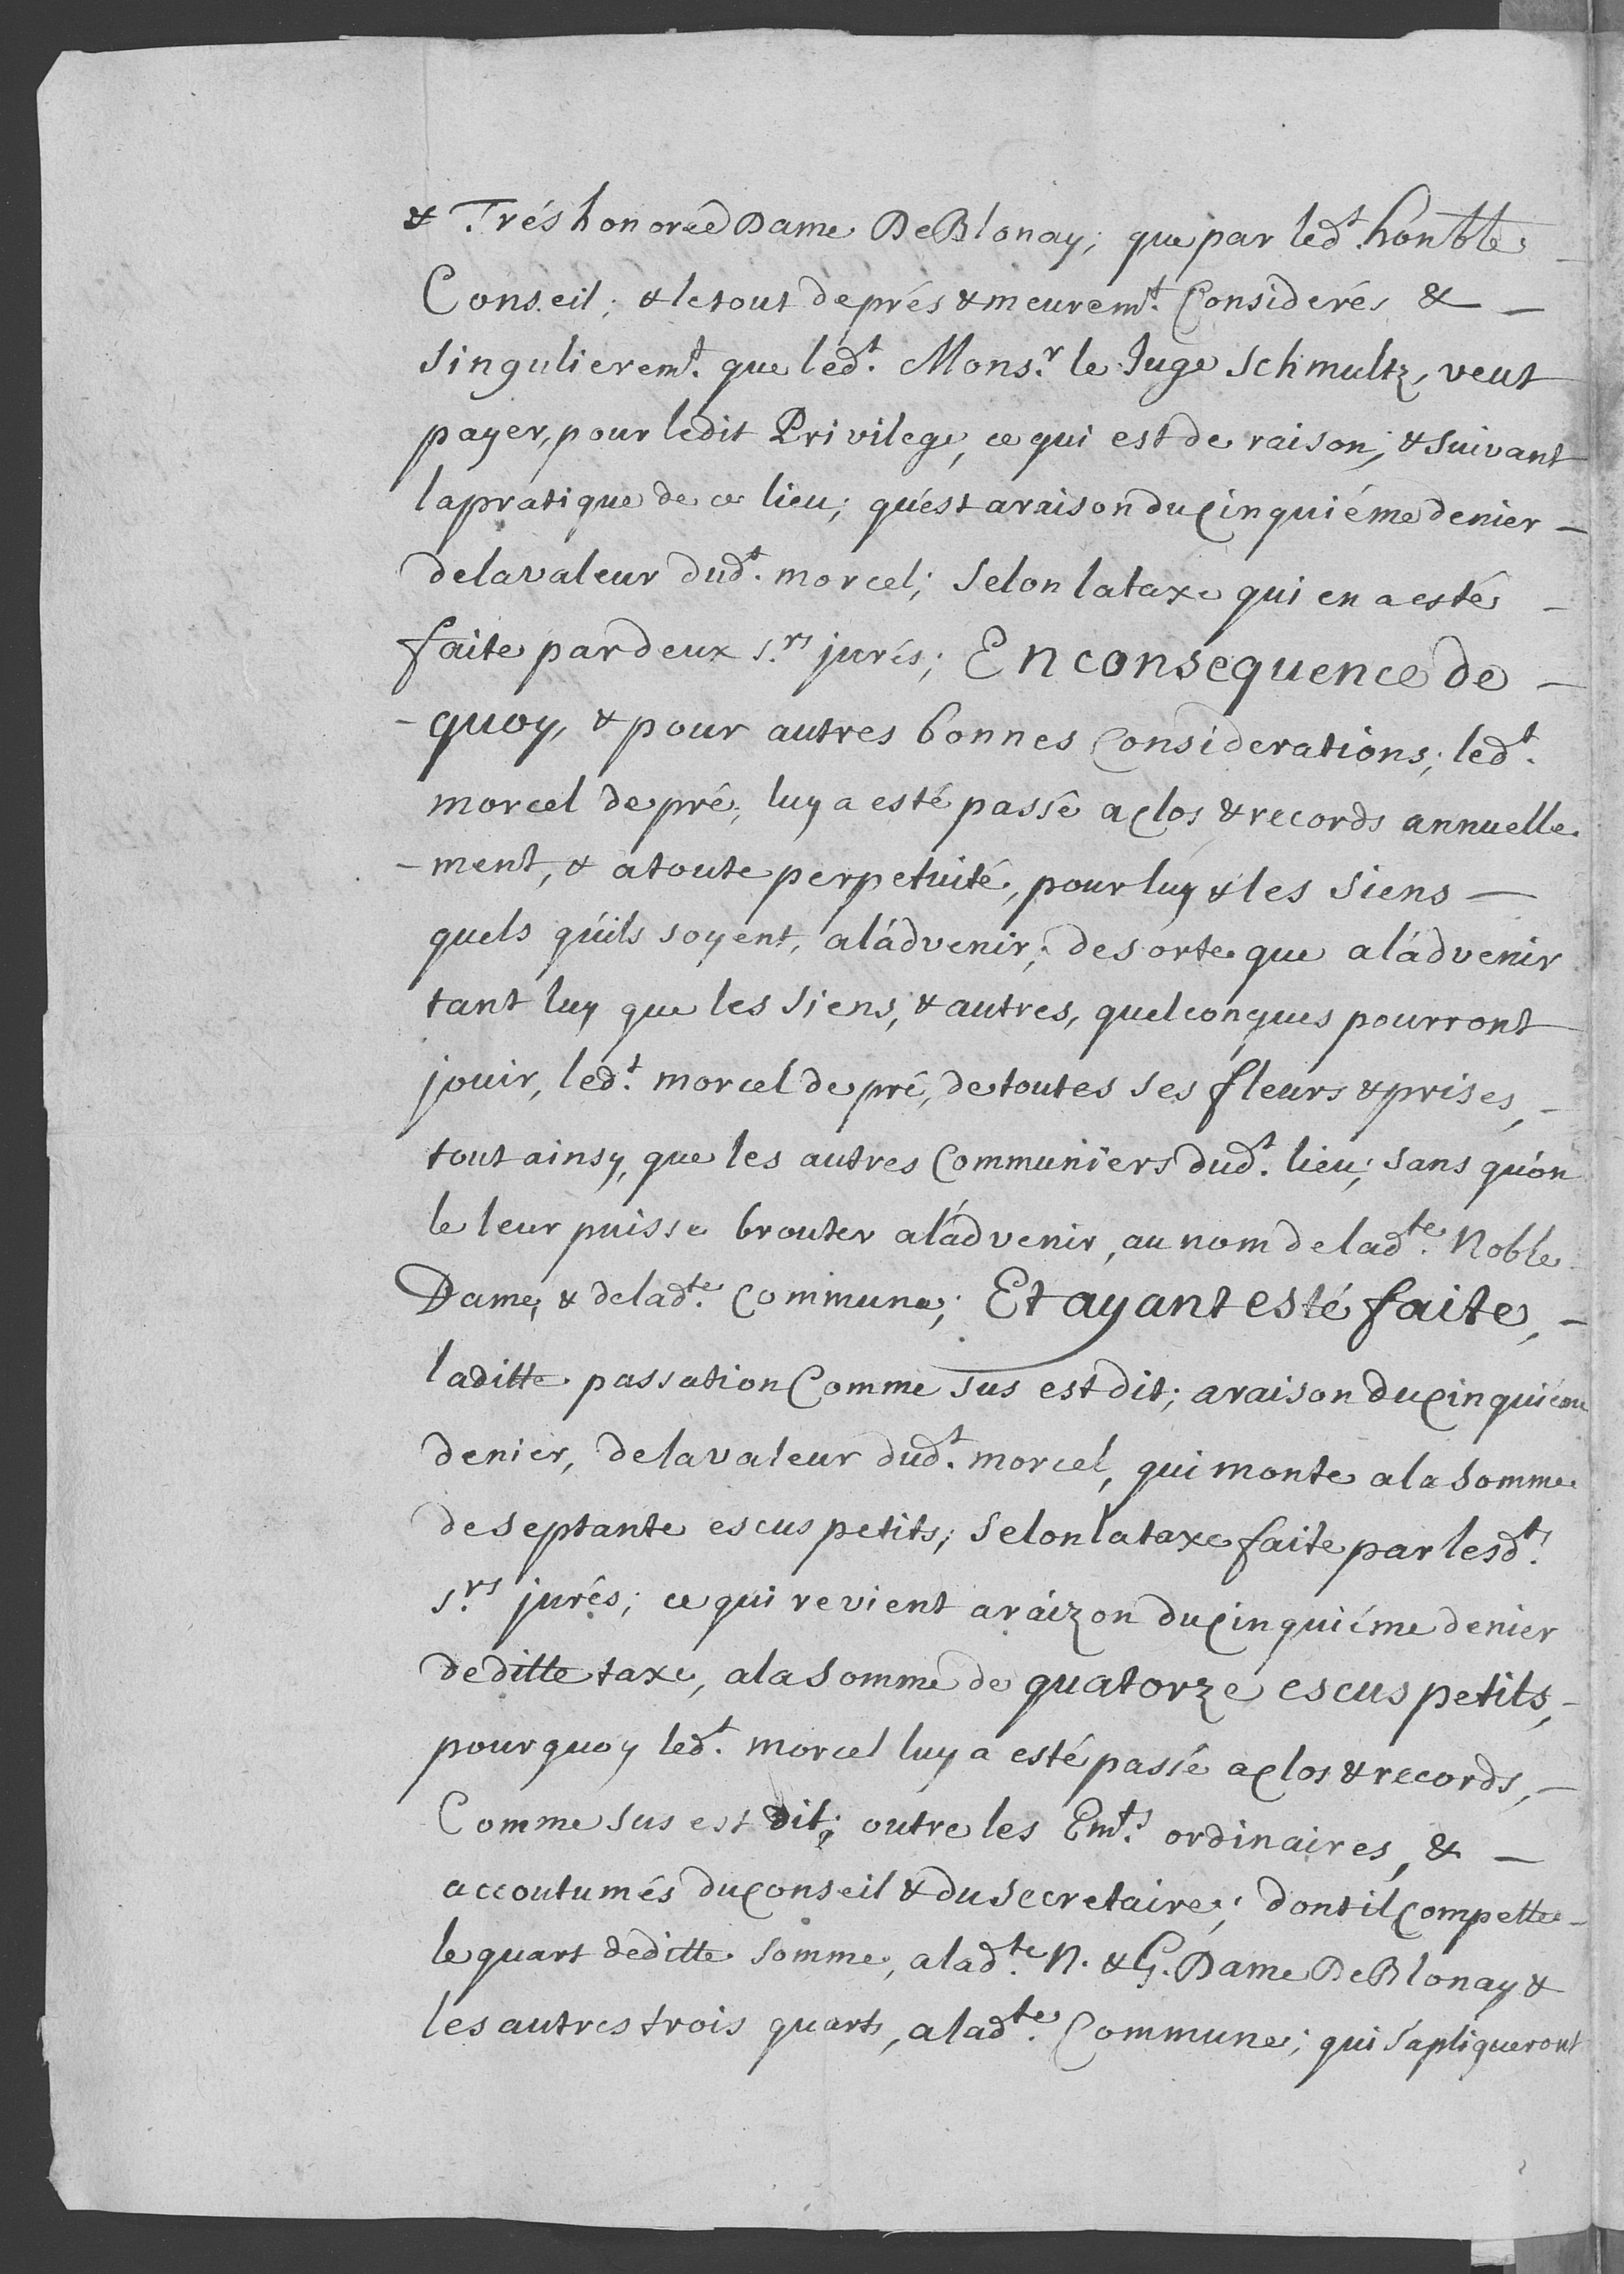 & Trés honorée Dame De Blonay; que par led.t honble
Conseil; & le tout de prés & meurem.t Considerés & —
Singulierem.t que led.t Mons.r le Juge Schmultz, veut
payer, pour ledit Privilege, ce qui est de raison, & suivant
la pratique de ce lieu; qu'est a raison du cinquiéme denier —
de la valeur dud.t morcel; Selon la taxe qui en a esté —
faite par deux s.rs jurés; En consequence de —
- quoy, & pour autres bonnes Considerations; led.t
morcel de pré, luy a esté passé a clos & records annuelle
- ment, & a toute perpetuité, pour luy & les Siens —
quels qu'ils soyent, a l'advenir; de sorte que a l'advenir
tant luy que les Siens, & autres, quelconques pourront
jouir, led.t morcel de pré, de toutes ses fleurs & prises, —
tout ainsy, que les autres Communiers dud.t lieu; sans qu'on
le leur puisse brouter a l'advenir, au nom de lad.te Noble
Dame, & de lad.te Commune; Et ayant esté faite, —
laditte passation Comme sus est dit; a raison du cinquiéme
denier, de la valeur dud.t morcel, qui monte a la somme
de septante escus petits; selon la taxe faite par lesd.ts
s.rs jurés; ce qui revient a raizon du cinquiéme denier
de ditte taxe, a la somme de quatorze escus petits, —
pourquoy led.t morcel luy a esté passé a clos & records, —
Comme sus est dit; outre les Em.ts ordinaires, & —
accoutumés du Conseil & du Secretaire; dont il compette —
le quart de ditte somme, a lad.te N. & G. Dame De Blonay &
les autres trois quarts, a lad.te Commune; qui s'apliqueront